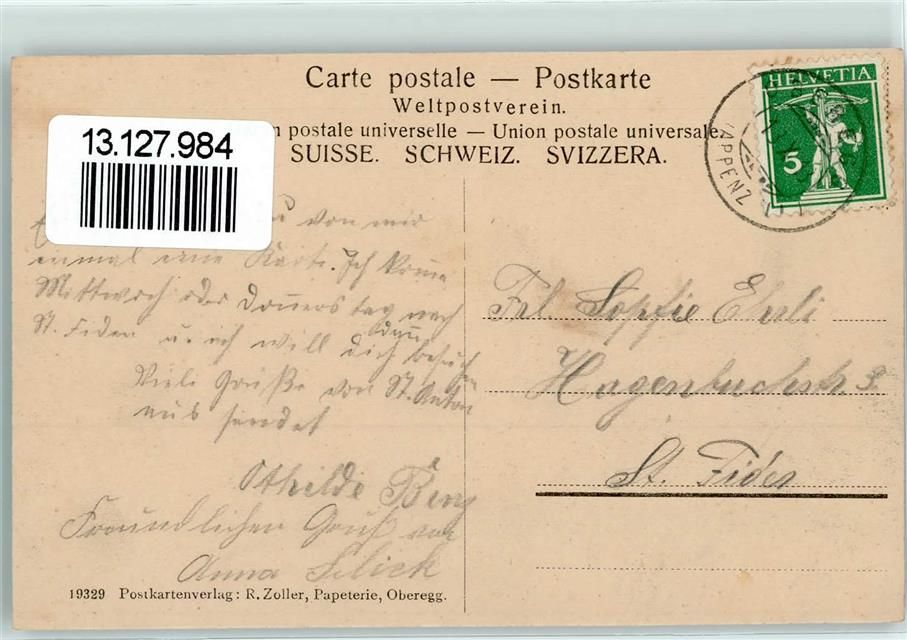 Carte postale — Postkarte
Weltpostverein.
postale universelle — Union postale universale.
SUISSE. SCHWEIZ. SVIZZERA.
13.127.984
HELVETIA
5
(APPENZ
von mir
einmal eine Karte. Ich komme
Mittwoch oder Donnerstag nach
St. Fiden u. ich will dich dann besuchen
Viele Grüße von St. Anton
aus sendet
Othilde
Freundlichen Gruß von
Anna
Frl. Sopfie Ehrli
Hagenbuchstr.
St. Fiden
19329 Postkartenverlag: R. Zoller, Papeterie, Oberegg.